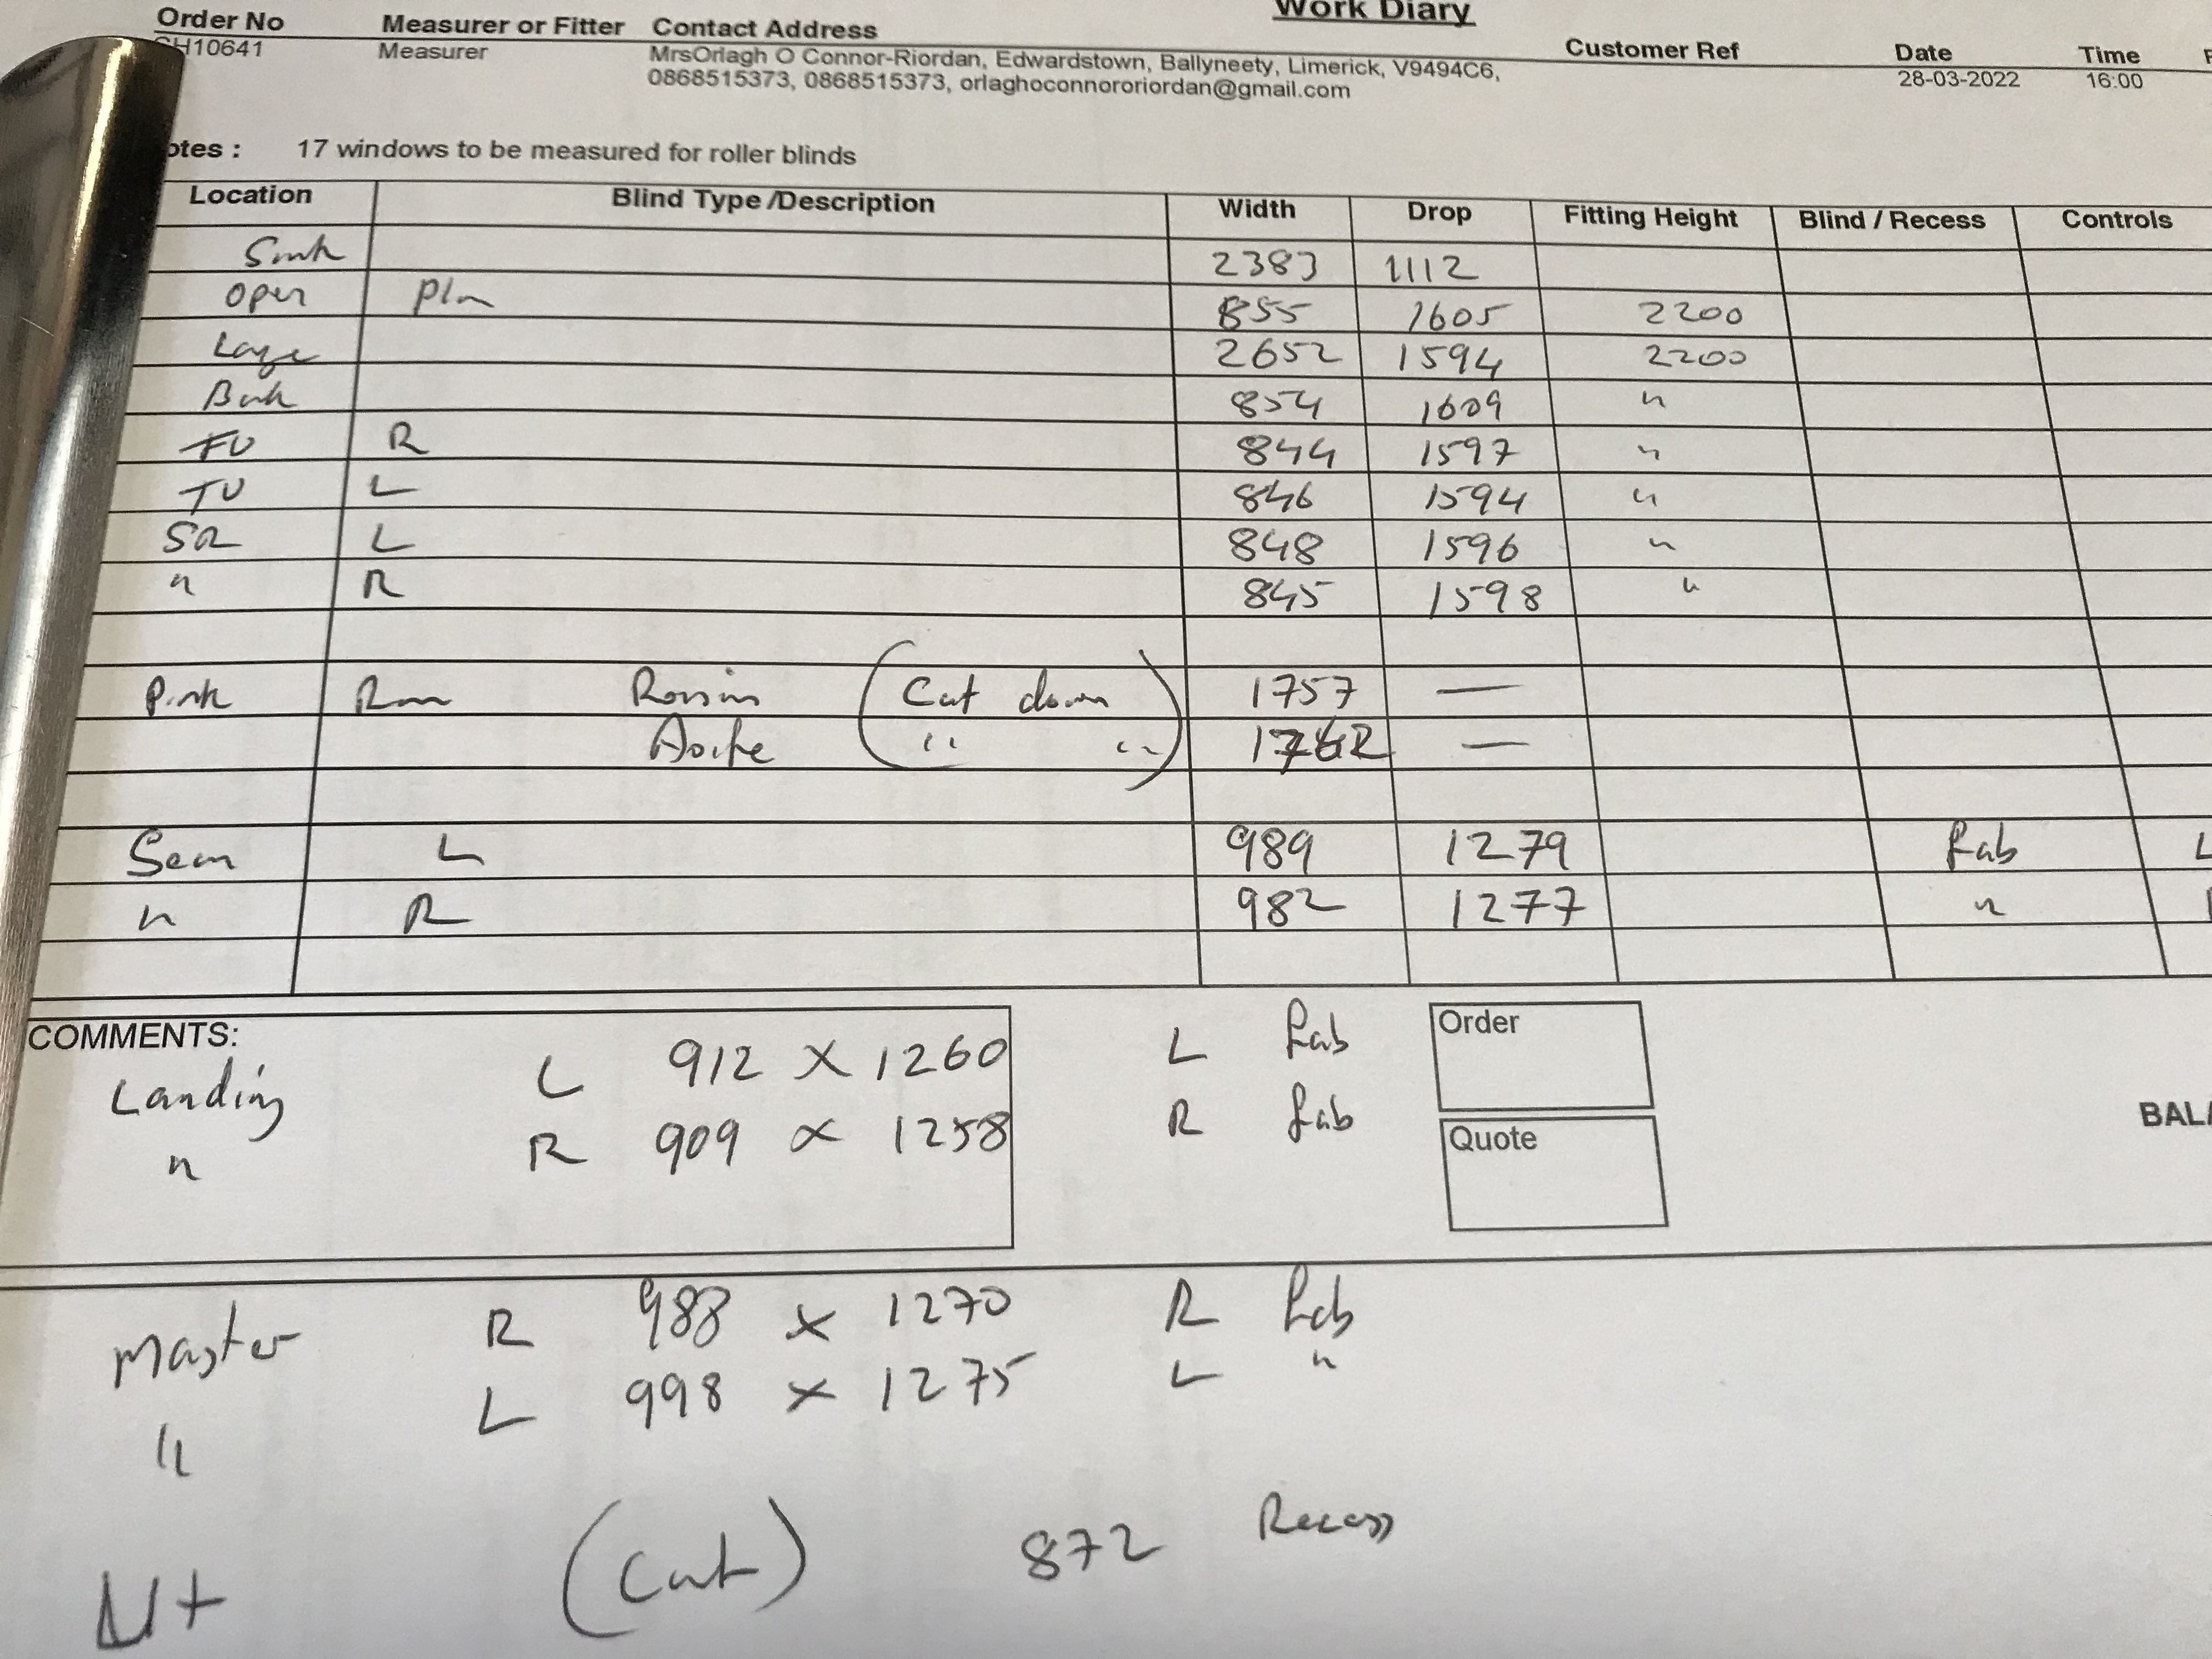 Work Diary
Order No Measurer or Fitter Contact Address Customer Ref Date Time
H10641 Measurer MrsOrlagh O Connor-Riordan, Edwardstown, Ballyneety, Limerick, V9494C6, 28-03-2022 16:00
0868515373, 0868515373, orlaghoconnororiordan@gmail.com
otes : 17 windows to be measured for roller blinds
Location Blind Type /Description Width Drop Fitting Height Blind / Recess Controls
Sink 2383 1112
Open Plan 855 1605 2200
Large 2652 1594 2200
Back 854 1609 "
R 844 1597 "
TV L 846 1594 "
SR L 848 1596 "
" R 845 1598 "
Pink Room Roisin (Cut down) 1757 —
Aoife " " —
Sean L 989 1279 Fab L
" R 982 1277 "
COMMENTS:
Landing L 912 X 1260 L Fab
" R 909 X 1258 R Fab
Order
Quote
BALA
Master R 988 X 1270 R Fab
" L 998 X 1275 L "
(Cut) 872 Recess